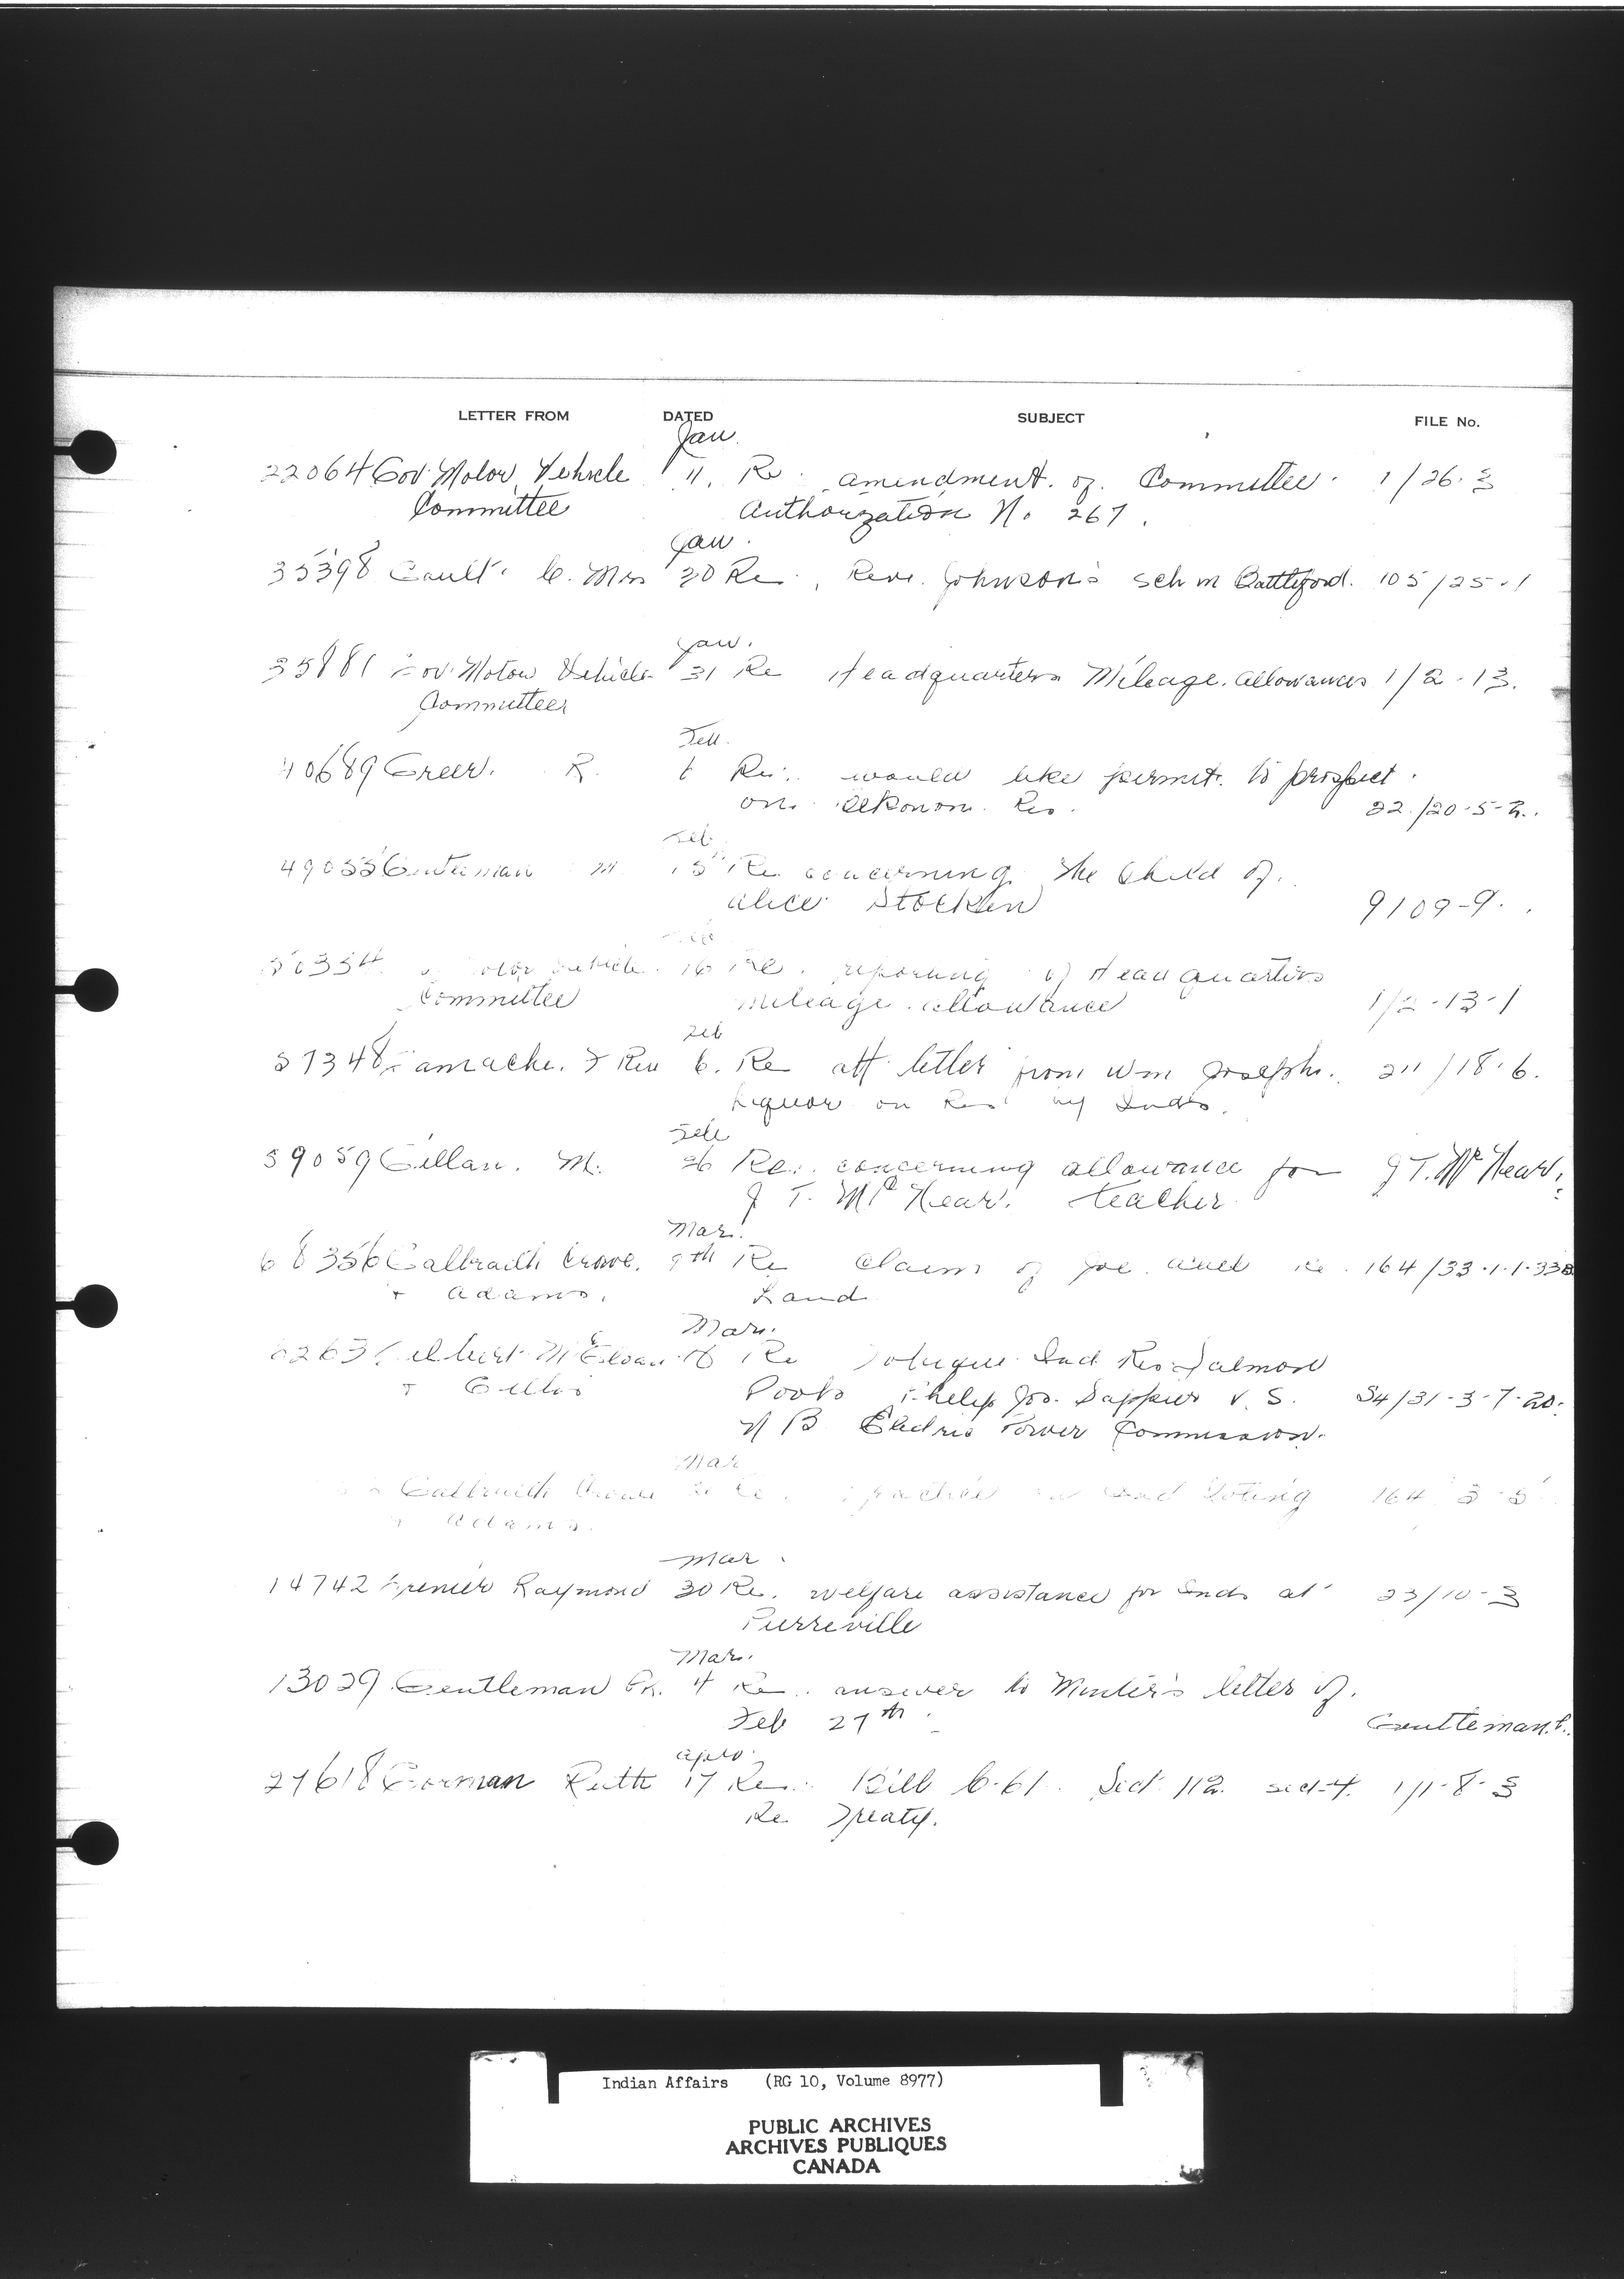 LETTER FROM DATED SUBJECT FILE No.
Jan.
22064 Gov. Motor Vehicle 11. Re amendment of Committee. 1/26-3
Committee Authorization No 267.
Jan.
35398 Gault. C. Mrs 30 Re. Reve. Johnson's sch in Battleford. 105/25-1
Jan.
35881 Gov. Motor Vehicle 31 Re Headquarters Mileage. allowances 1/2-13.
Committee
Feb.
40689 Greer. R. 6 Re. would like permit. to prospect.
on Res. 22/20-5-2.
Feb.
49055 Gentleman M 15 Re concerning the Child of.
Alice Stocken 9109-9.
Feb
50354 Gov Motor Vehicle. 16 Re. reporting of Headquarters
Committee mileage allowance 1/2-13-1
Feb
57348 Gamache. F Rev 6. Re att letter from Wm Joseph. 211/18-6.
Liquor on Res by Inds.
Feb
59059 Gillan. M. 26 Re. concerning allowance for J T. Mc Near.
J T. Mc Near. teacher.
Mar.
68356 Galbraith Crowe. 9th Re Claim of Joe re 164/33-1-1-33B
+ Adams. Land
Mar.
Gilbert McEloan 16 Re Tobique Ind Res Salmon
+ Gillis Pools Philip Jos. Sappier V. S. 54/31-3-7-20.
N B Electric Power Commission.
Mar
Galbraith Crowe Re. Ind Voting 164 3-5
+ Adams.
Mar.
14742 Grenier Raymond 30 Re. welfare assistance for Inds at 23/10-3
Pierreville
Mar.
13029 Gentleman Gn. 4 Re. answer to Minter's letter of.
Feb 27th. Gentleman.
Apr.
27618 Gorman Ruth 17 Re. Bill C-61. Sect 112. sect-4. 1/1-8-3
Re Treaty.
Indian Affairs (RG 10, Volume 8977)
PUBLIC ARCHIVES
ARCHIVES PUBLIQUES
CANADA